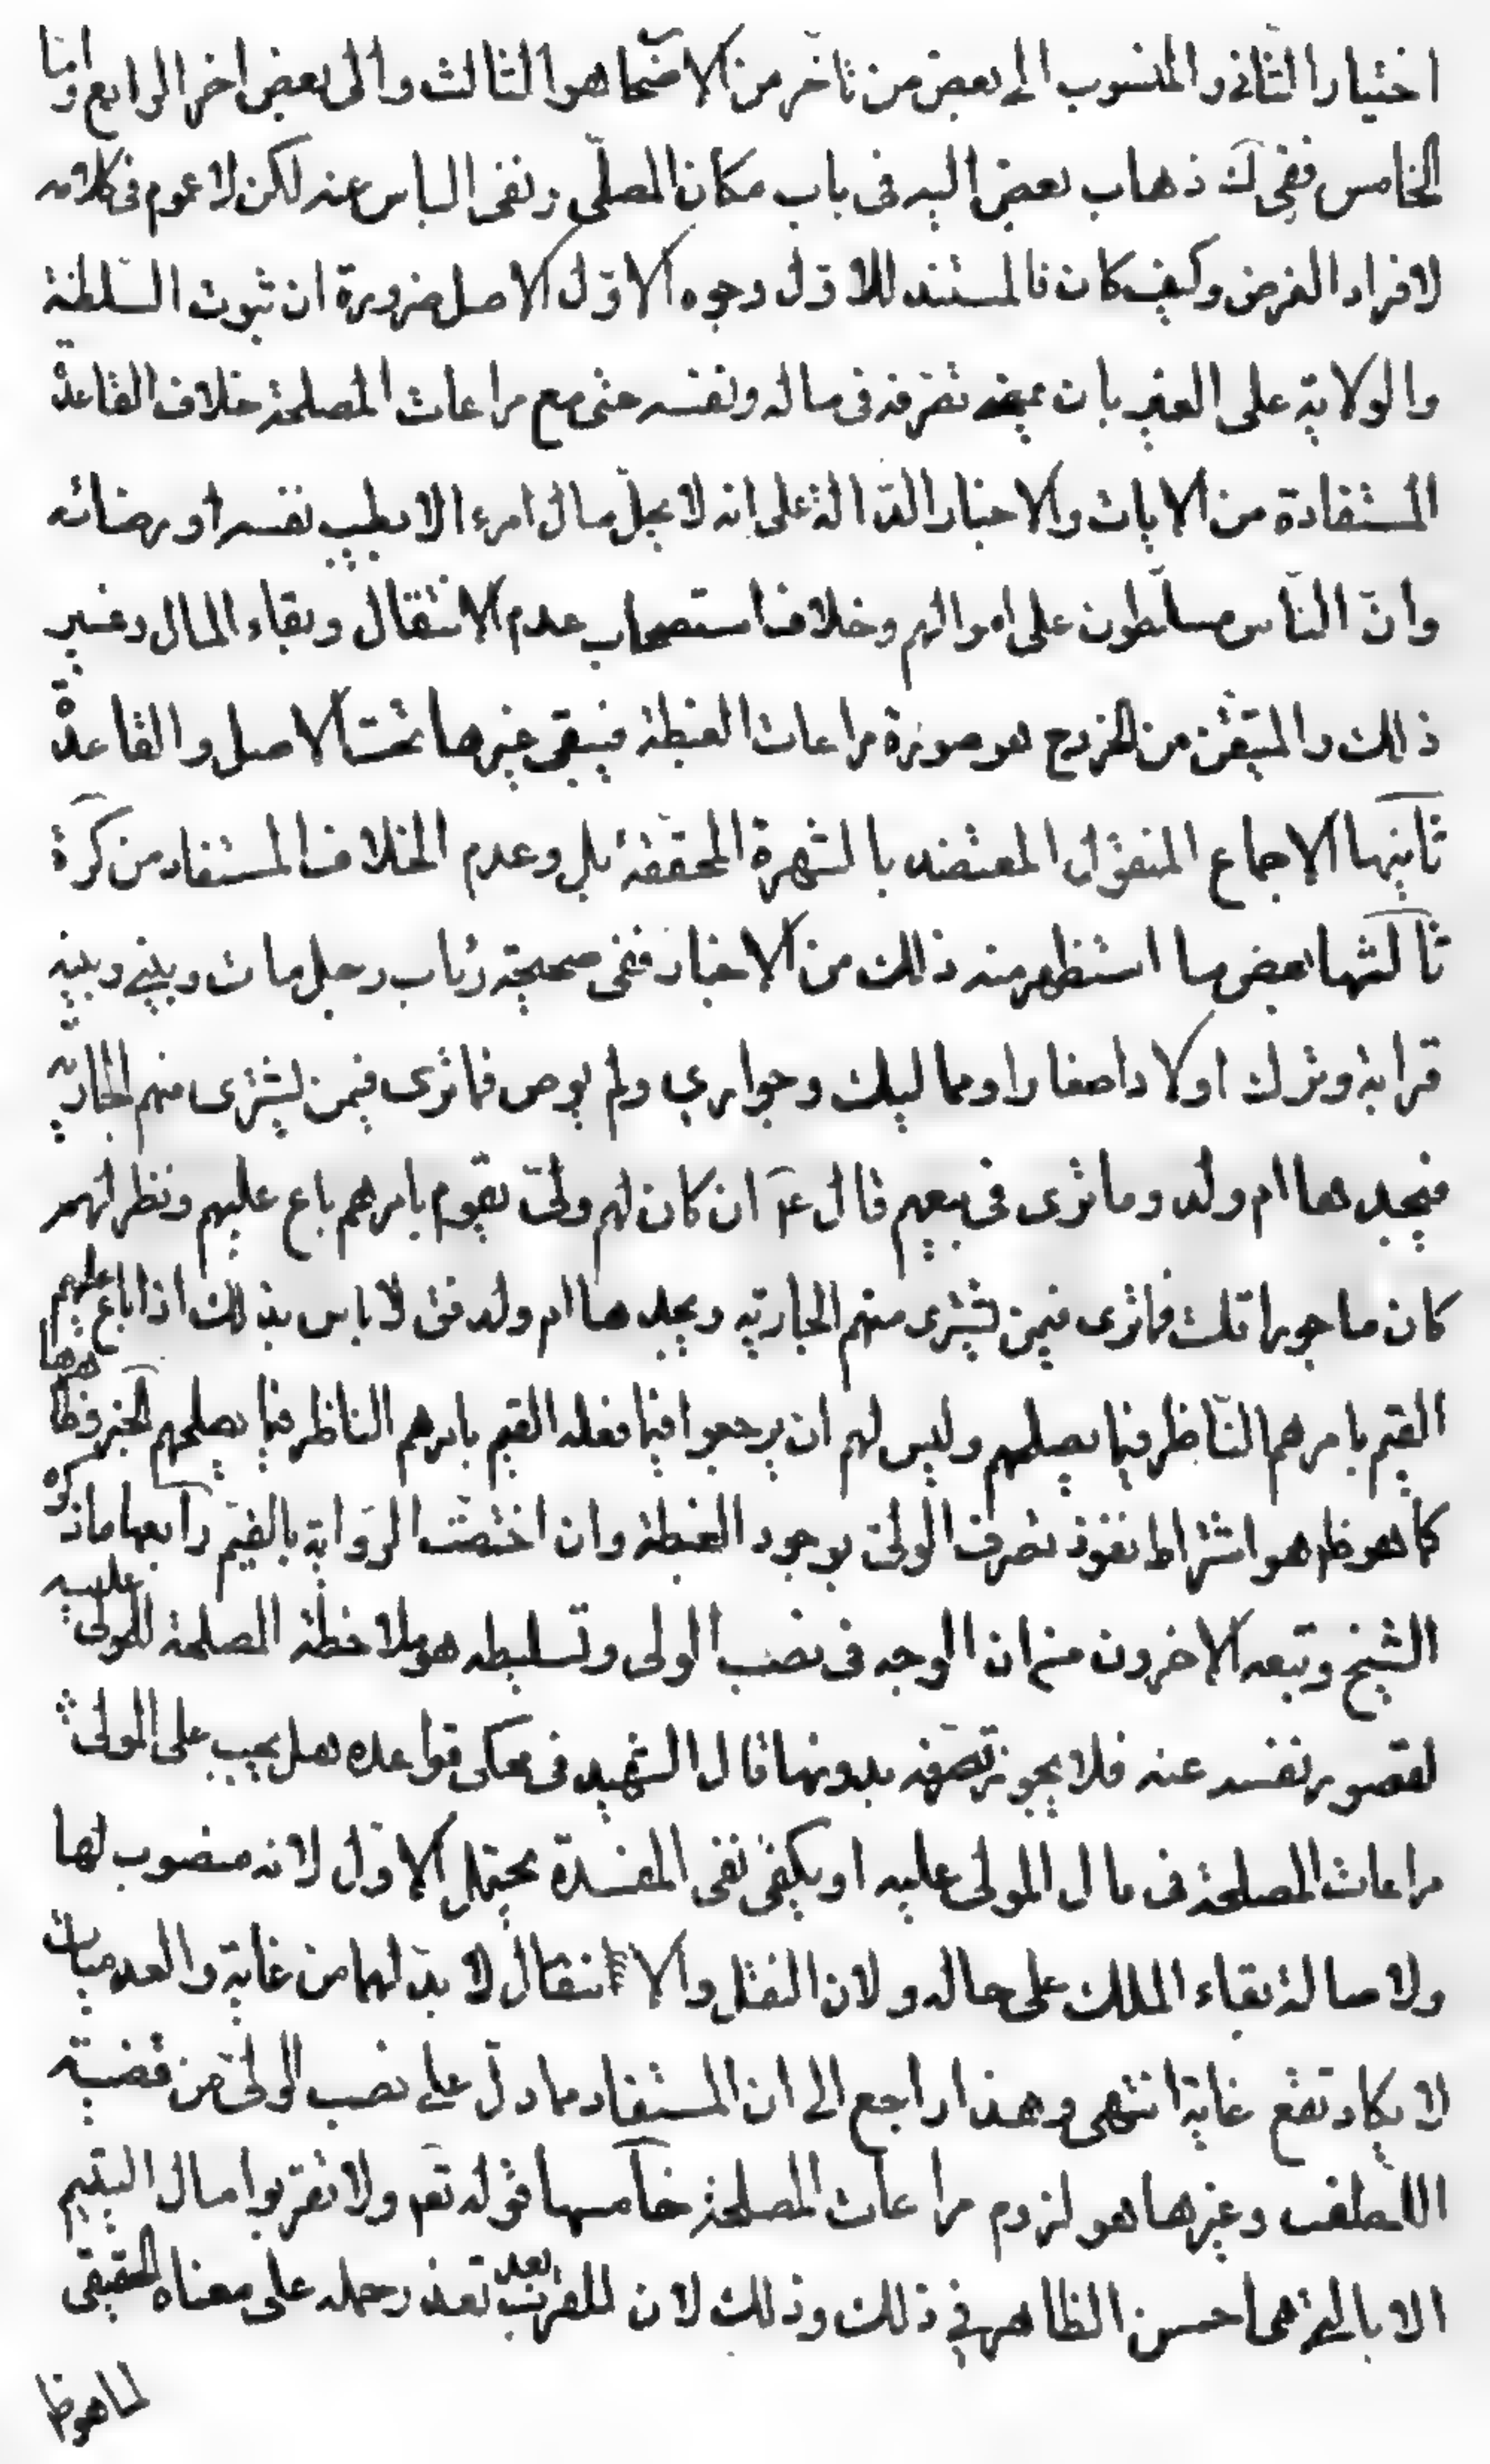 اختيار الثانى والمنسوب الى بعض من تاخّر من الاصحاب هو الثالث والى بعض اخر الرابع وامّا
الخامس ففى ك ذهاب بعض اليه فى باب مكان المصلّى ونفى الباس عنه لكن لا عموم فى كلامه
لافراد الغرض وكيف كان فالمستند للاوّل وجوه الاوّل الاصل ضرورة ان ثبوت السّلطنة
والولاية على الغير بان يمضى تصرفه فى ماله ونفسه حتى مع مراعات المصلحة خلاف القاعدة
المستفادة من الايات والاخبار الدّالة على انه لا يحلّ مال امرء الا بطيب نفسه او رضائه
وانّ النّاس مسلّطون على اموالهم وخلاف استصحاب عدم الانتقال وبقاء المال وغير
ذلك والمتيقّن من الخروج هو صورة مراعات الغبطة فيبقى غيرها تحت الاصل والقاعدة
ثانيها الاجماع المنقول المعتضد بالشهرة المحققة بل وعدم الخلاف المستفاد من كرة
ثالثها بعض ما استظهر منه ذلك من الاخبار ففى صحيحة رئاب رجل مات وبينى وبينه
قرابة وترك اولادا صغارا ومماليك وجوارى ولم يوص فما ترى فيمن يشترى منهم الجارية
فيجدها ام ولد وما ترى فى بيعهم قال ع ان كان لهم ولىّ يقوم بامرهم باع عليهم ونظر لهم
كان ماجورا قلت فما ترى فيمن يشترى منهم الجارية ويجدها ام ولد فق لا باس بذلك اذا باع عليهم
القيم بامرهم النّاظر فيما يصلحهم وليس لهم ان يرجعوا فيما فعله القيم بامرهم الناظر فيما يصلحهم الخبر وظاهرها
كما هو ظ هو اشتراط نفوذ تصرف الولىّ بوجود الغبطة وان اختصّت الرّواية بالقيّم رابعها ما ذكره
الشيخ وتبعه الاخرون من ان الوجه فى نصب الولى وتسليطه هو ملاحظة المصلحة للمولى عليه
لقصور نفسه عنه فلا يجوز تصرّفه بدونها قال الشهيد فى محكى قواعده هل يجب على الولى
مراعات المصلحة فى مال المولى عليه او يكفى نفى المفسدة يحتمل الاوّل لانه منصوب لها
ولاصالة بقاء الملك على حاله ولان النقل والانتقال لا بدّ لهما من غاية والعدميات
لا يكاد تقع غاية انتهى وهذا راجع الى ان المستفاد مما دلّ على نصب الولىّ من قضية
اللّطف وغيرها هو لزوم مراعات المصلحة خامسها قوله تعه ولا تقربوا مال اليتيم
الا بالتى هى احسن الظاهر فى ذلك وذلك لان للقرب بعد تعذر حمله على معناه الحقيقى
لما هو ظ